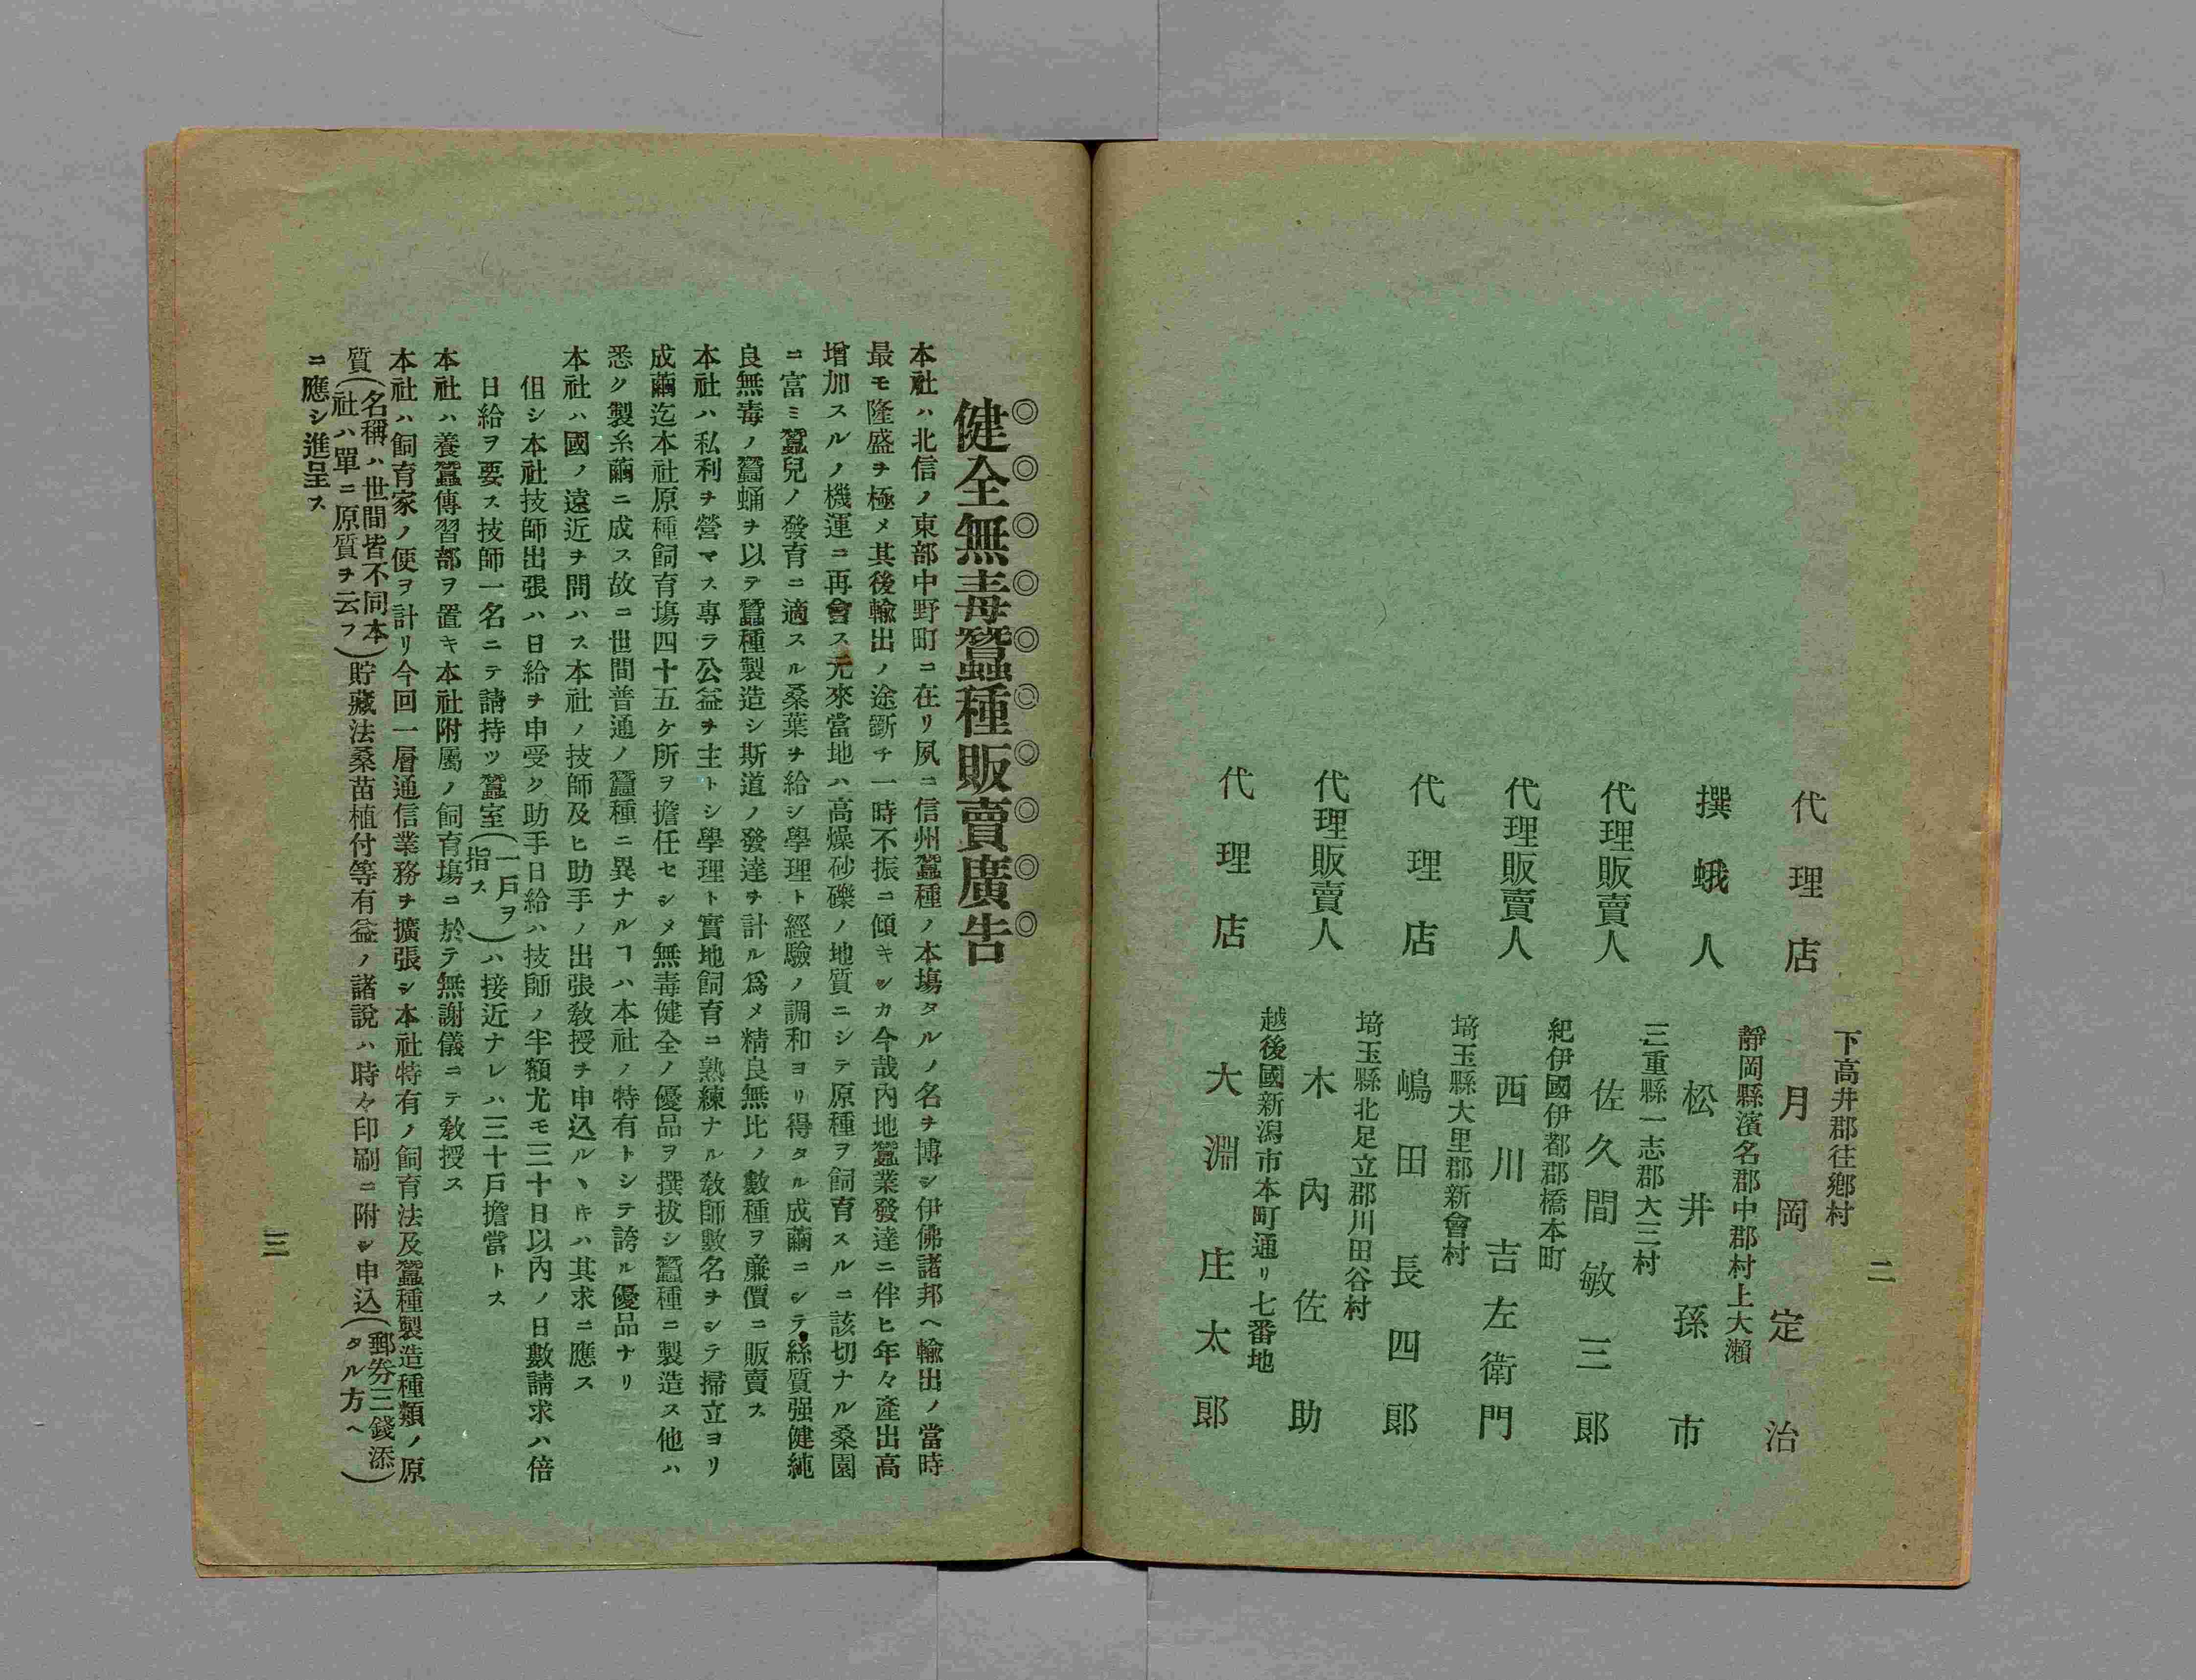 二
下高井郡往鄕村
代理店 月岡定治
靜岡縣濱名郡中郡村上大瀨
撰蛾人 松井孫市
三重縣一志郡大三村
代理販賣人 佐久間敏三郎
紀伊國伊都郡橋本町
代理販賣人 西川吉左衛門
埼玉縣大里郡新會村
代理店 嶋田長四郎
埼玉縣北足立郡川田谷村
代理販賣人 木內佐助
越後國新潟市本町通リ七番地
代理店 大淵庄太郎
◎◎◎◎◎◎◎◎◎◎
健全無毒蠶種販賣廣告
本社ハ北信ノ東部中野町ニ在リ夙ニ信州蠶種ノ本塲タルノ名ヲ博シ伊佛諸邦ヘ輸出ノ當時
最モ隆盛ヲ極メ其後輸出ノ途斷チ一時不振ニ傾キシカ今哉內地蠶業發達ニ伴ヒ年々產出高
增加スルノ機運ニ再會ス元來當地ハ高燥砂礫ノ地質ニシテ原種ヲ飼育スルニ該切ナル桑園
ニ富ミ蠶兒ノ發育ニ適スル桑葉ヲ給シ學理ト經驗ノ調和ヨリ得タル成繭ニシテ絲質强健純
良無毒ノ蠶蛹ヲ以テ蠶種製造シ斯道ノ發達ヲ計ル爲メ精良無比ノ數種ヲ亷價ニ販賣ス
本社ハ私利ヲ營マス專ラ公益ヲ主トシ學理ト實地飼育ニ熟練ナル敎師數名ヲシテ掃立ヨリ
成繭迄本社原種飼育塲四十五ケ所ヲ擔任セシメ無毒健全ノ優品ヲ撰拔シ蠶種ニ製造ス他ハ
悉ク製糸繭ニ成ス故ニ世間普通ノ蠶種ニ異ナルヿハ本社ノ特有トシテ誇ル優品ナリ
本社ハ國ノ遠近ヲ問ハス本社ノ技師及ヒ助手ノ出張敎授ヲ申込ルヽ𪜈ハ其求ニ應ス
但シ本社技師出張ハ日給ヲ申受ク助手日給ハ技師ノ半額尤モ三十日以內ノ日數請求ハ倍
日給ヲ要ス技師一名ニテ請持ツ蠶室(一戶ヲ指ス)ハ接近ナレハ三十戶擔當トス
本社ハ養蠶傳習部ヲ置キ本社附屬ノ飼育塲ニ於テ無謝儀ニテ敎授ス
本社ハ飼育家ノ便ヲ計リ今回一層通信業務ヲ擴張シ本社特有ノ飼育法及蠶種製造種類ノ原
質(名稱ハ世間皆不同本社ハ單ニ原質ヲ云フ)貯藏法桑苗植付等有益ノ諸說ハ時々印刷ニ附シ申込(郵券三錢添タル方ヘ)
ニ應シ進呈ス
三